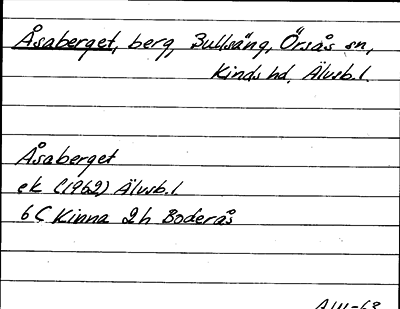 Åsaberget, berg, Bullsäng, Örsås sn,
Kinds hd, Älvsb.l.
Åsaberget
ek (1962) Älvsb.l
6C Kinna 2h Boderås